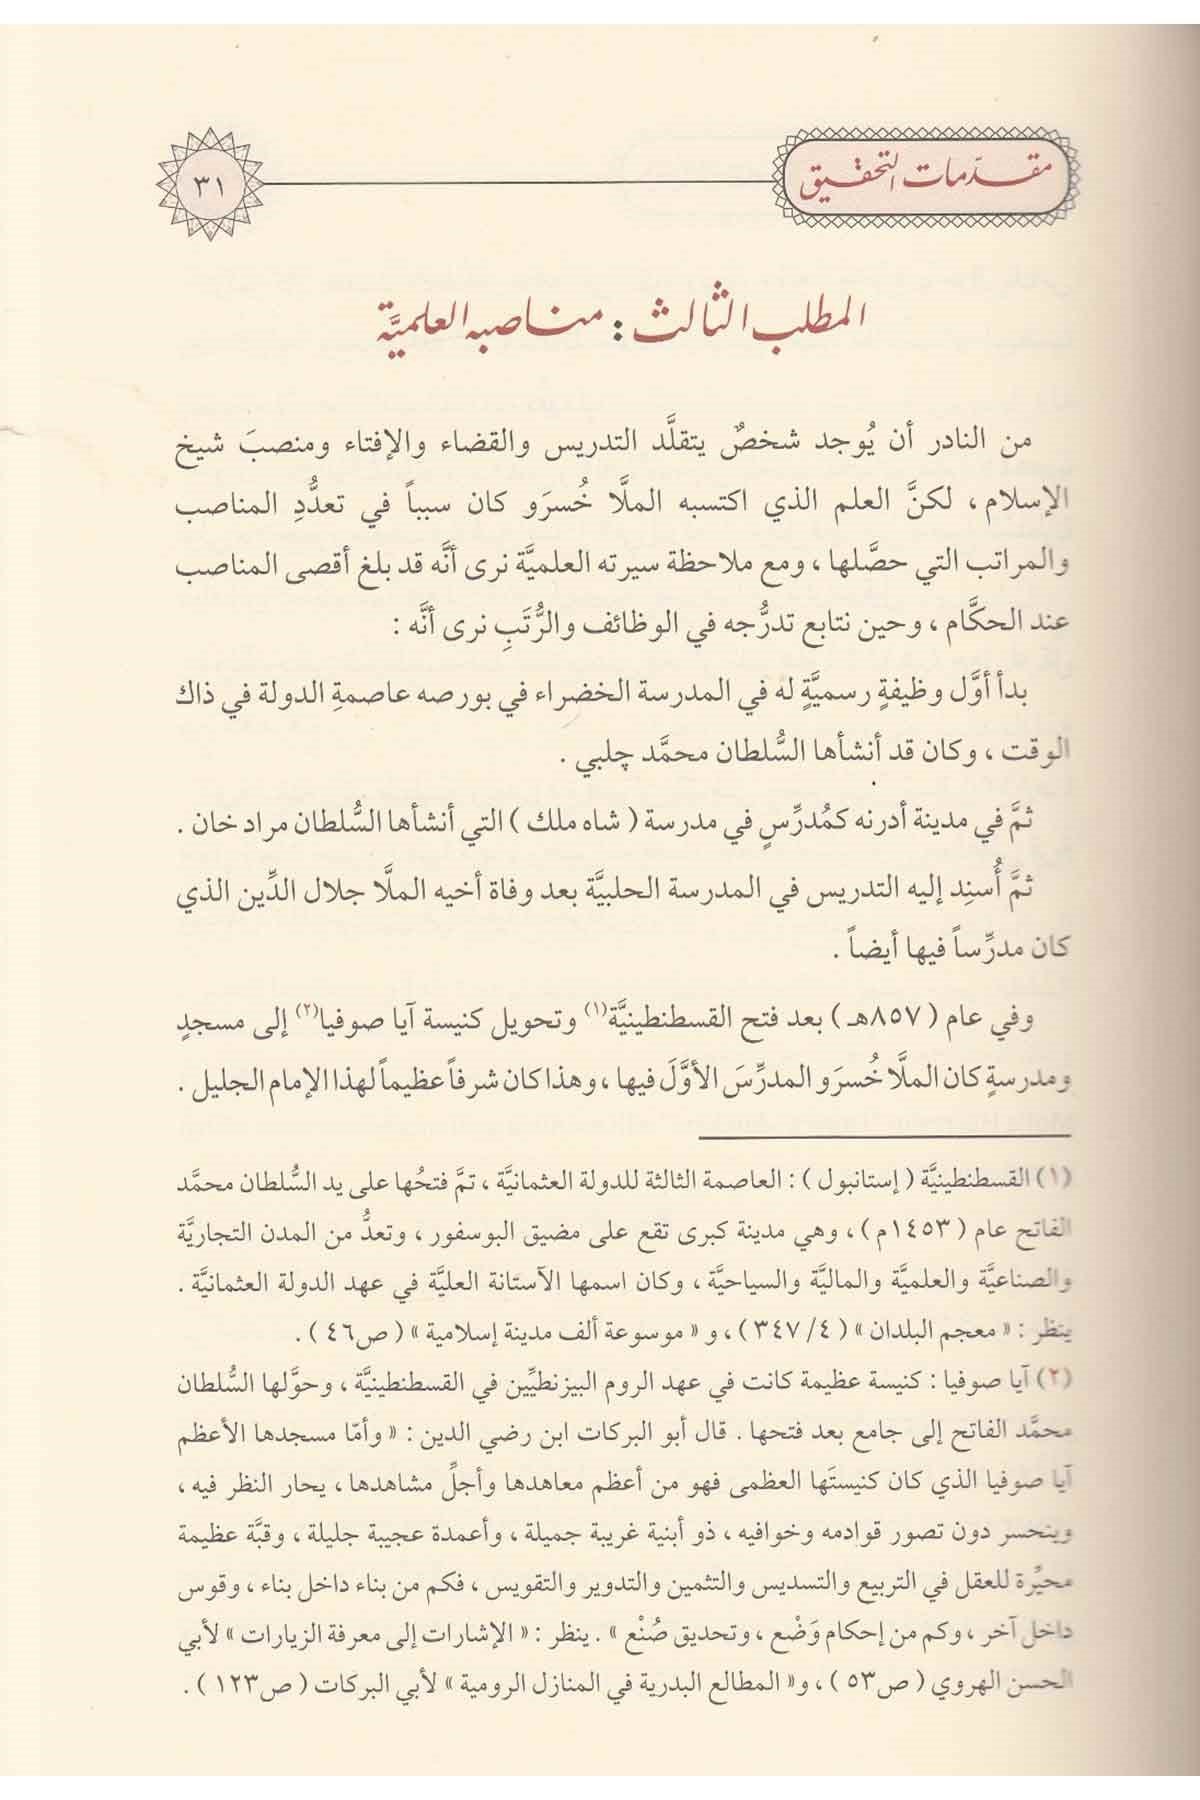 مقدّمات التحقيق
٣١
المطلب الثالث : مناصبه العلميَّة
من النادر أن يُوجد شخصٌ يتقلَّد التدريس والقضاء والإفتاء ومنصبَ شيخ
الإسلام ، لكنَّ العلم الذي اكتسبه الملَّا خُسرَو كان سبباً في تعدُّدِ المناصب
والمراتب التي حصَّلها ، ومع ملاحظة سيرته العلميَّة نرى أنَّه قد بلغ أقصى المناصب
عند الحكَّام ، وحين نتابع تدرُّجه في الوظائف والرُّتَبِ نرى أنَّه :
بدأ أوَّل وظيفةٍ رسميَّةٍ له في المدرسة الخضراء في بورصه عاصمةِ الدولة في ذاك
الوقت ، وكان قد أنشأها السُّلطان محمَّد چلبي .
ثمَّ في مدينة أدرنه كمُدرِّسٍ في مدرسة ( شاه ملك ) التي أنشأها السُّلطان مراد خان .
ثمَّ أُسنِد إليه التدريس في المدرسة الحلبيَّة بعد وفاة أخيه الملَّا جلال الدِّين الذي
كان مدرِّساً فيها أيضاً .
وفي عام ( ٨٥٧هـ ) بعد فتح القسطنطينيَّة(١) وتحويل كنيسة آيا صوفيا(٢) إلى مسجدٍ
ومدرسةٍ كان الملَّا خُسرَو المدرِّسَ الأوَّلَ فيها ، وهذا كان شرفاً عظيماً لهذا الإمام الجليل .
(١) القسطنطينيَّة ( إستانبول ) : العاصمة الثالثة للدولة العثمانيَّة ، تمَّ فتحُها على يد السُّلطان محمَّد
الفاتح عام ( ١٤٥٣م ) ، وهي مدينة كبرى تقع على مضيق البوسفور ، وتعدُّ من المدن التجاريَّة
والصناعيَّة والعلميَّة والماليَّة والسياحيَّة ، وكان اسمها الآستانة العليَّة في عهد الدولة العثمانيَّة .
ينظر : « معجم البلدان » ( ٤/ ٣٤٧ ) ، و « موسوعة ألف مدينة إسلامية » ( ص٤٦ ) .
(٢) آيا صوفيا : كنيسة عظيمة كانت في عهد الروم البيزنطيِّين في القسطنطينيَّة ، وحوَّلها السُّلطان
محمَّد الفاتح إلى جامع بعد فتحها . قال أبو البركات ابن رضي الدين : « وأمّا مسجدها الأعظم
آيا صوفيا الذي كان كنيستَها العظمى فهو من أعظم معاهدها وأجلِّ مشاهدها ، يحار النظر فيه ،
وينحسر دون تصور قوادمه وخوافيه ، ذو أبنية غريبة جميلة ، وأعمدة عجيبة جليلة ، وقبَّة عظيمة
محيِّرة للعقل في التربيع والتسديس والتثمين والتدوير والتقويس ، فكم من بناء داخل بناء ، وقوس
داخل آخر ، وكم من إحكام وَضْع ، وتحديق صُنْع » . ينظر : « الإشارات إلى معرفة الزيارات » لأبي
الحسن الهروي ( ص٥٣ ) ، و« المطالع البدرية في المنازل الرومية » لأبي البركات ( ص١٢٣ ) .